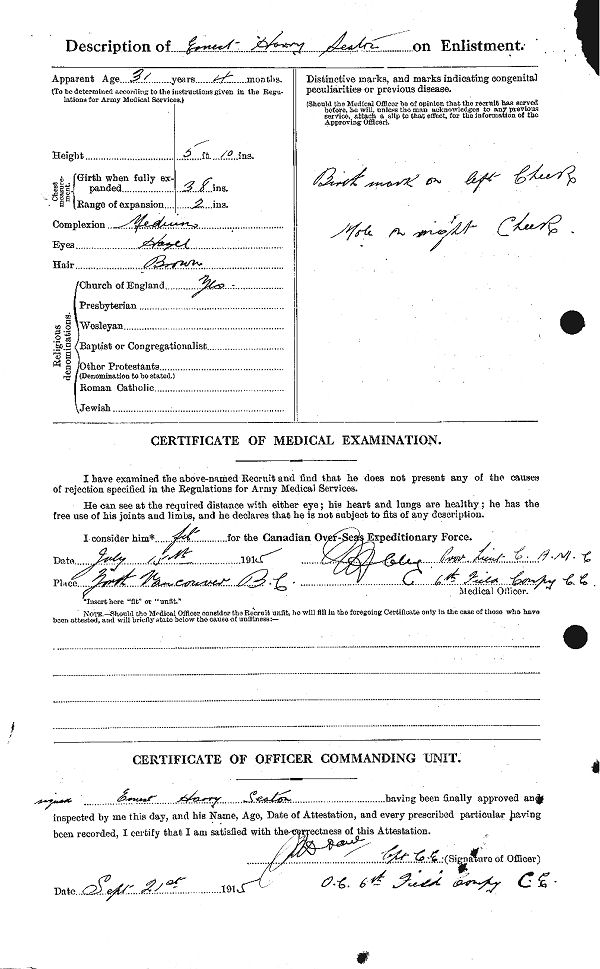 Description of Ernest Harry Seaton on Enlistment.
Apparent Age 31 years 4 months.
(To be determined according to the instructions given in the Regu-
lations for Army Medical Services.)
Height 5 ft 10 ins.
Chest measure-ment.
Girth when fully ex-
panded 38 ins.
Range of expansion 2 ins.
Complexion Medium
Eyes Hazel
Hair Brown
Religious denominations.
Church of England Yes
Presbyterian
Wesleyan
Baptist or Congregationalist
Other Protestants
(Denomination to be stated.)
Roman Catholic
Jewish
Distinctive marks, and marks indicating congenital
peculiarities or previous disease.
(Should the Medical Officer be of opinion that the recruit has served
before, he will, unless the man acknowledges to any previous
service, attach a slip to that effect, for the information of the
Approving Officer).
Birth mark on left Cheek
Mole on right Cheek.
CERTIFICATE OF MEDICAL EXAMINATION.
I have examined the above-named Recruit and find that he does not present any of the causes
of rejection specified in the Regulations for Army Medical Services.
He can see at the required distance with either eye; his heart and lungs are healthy; he has the
free use of his joints and limbs, and he declares that he is not subject to fits of any description.
I consider him* fit for the Canadian Over-Seas Expeditionary Force.
Date July 15th 1915 Lieut C. A. M. C
Place North Vancouver B.C. 6th Field Compy C.E.
Medical Officer.
*Insert here "fit" or "unfit."
NOTE.—Should the Medical Officer consider the Recruit unfit, he will fill in the foregoing Certificate only in the case of those who have
been attested, and will briefly state below the cause of unfitness:—
CERTIFICATE OF OFFICER COMMANDING UNIT.
signed Ernest Harry Seaton having been finally approved and
inspected by me this day, and his Name, Age, Date of Attestation, and every prescribed particular having
been recorded, I certify that I am satisfied with the correctness of this Attestation.
Cpt C.E. (Signature of Officer)
Date Sept 21st 1915 O.C. 6th Field Compy C.E.